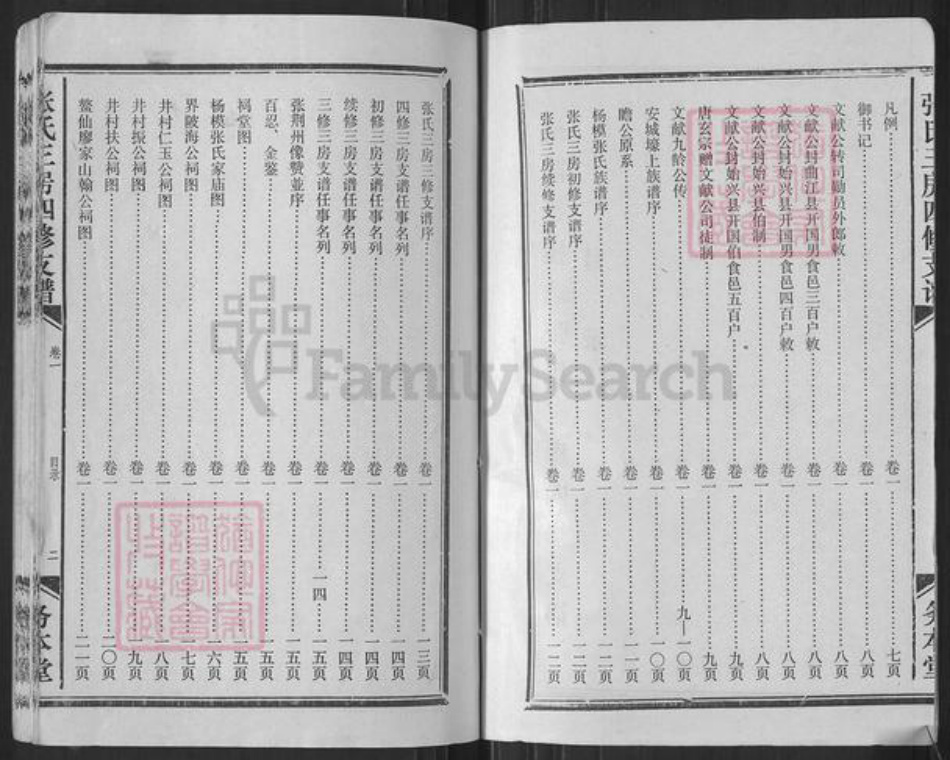 凡例 卷一 七页
御书记 卷一 八页
文献公转司勋员外郎敕 卷一 八页
文献公封曲江县开国男食邑三百户敕 卷一 八页
文献公封始兴县开国男食邑四百户敕 卷一 八页
文献公封始兴县伯制 卷一 八页
文献公封始兴县开国伯食邑五百户 卷一 九页
唐玄宗赠文献公司徒制 卷一 九页
文献九龄公传 卷一 九—一〇页
安城壕上族谱序 卷一 一〇页
瞻公原系 卷一 一一页
杨模张氏族谱序 卷一 一二页
张氏三房初修支谱序 卷一 一二页
张氏三房续修支谱序 卷一 一二页
张氏三房四修支谱
务本堂
张氏三房三修支谱序 卷一 一三页
四修三房支谱任事名列 卷一 一四页
初修三房支谱任事名列 卷一 一四页
续修三房支谱任事名列 卷一 一四页
三修三房支谱任事名列 卷一 一四 一五页
张荆州像赞並序 卷一 一五页
百忍、金鉴 卷一 一五页
祠堂图 卷一 一五页
杨模张氏家庙图 卷一 一六页
界陂海公祠图 卷一 一七页
井村仁玉公祠图 卷一 一八页
井村振公祠图 卷一 一九页
井村扶公祠图 卷一 二〇页
鳌仙廖家山翰公祠图 卷一 二一页
张氏三房四修支谱 卷一 目录 二 务本堂
FamilySearch